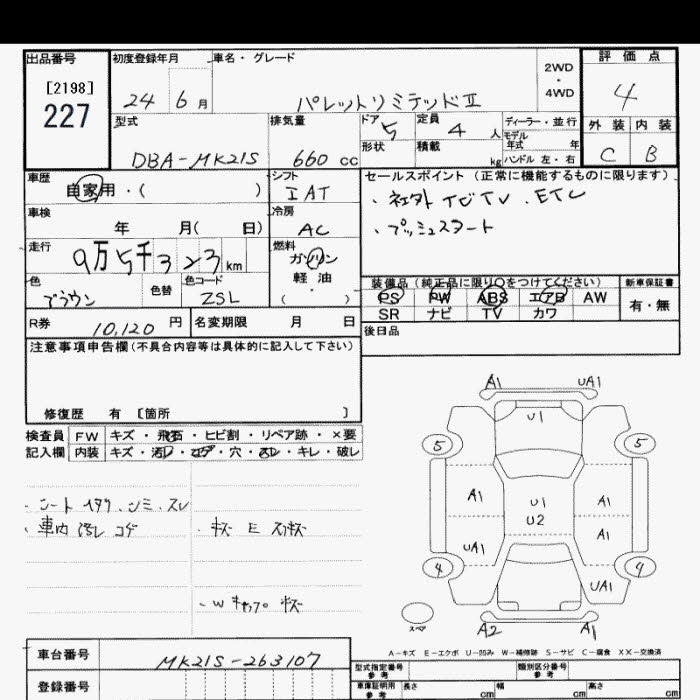 出品番号
[2198]
227
初度登録年月
24 6 月
車名・グレード
パレットリミテッドⅡ
2WD
・
4WD
評価点
4
外装 内装
C B
型式
DBA-MK21S
排気量
660 cc
ドア
5
定員
4 人
形状
積載
kg
ディーラー・並行
モデル
年式 年
ハンドル 左・右
車歴
自家用・( )
シフト
IAT
車検
年 月( 日)
冷房
AC
走行
9万5千323 km
燃料
ガソリン
軽油
( ・ )
色
ブラウン
色替
色コード
ZSL
セールスポイント(正常に機能するものに限ります)
・社外ナビTV.ETC
・プッシュスタート
装備品(純正品に限り○をつけてください)
新車保証書
PS PW ABS エアB AW
SR ナビ TV カワ
有・無
後日品
R券
10,120 円
名変期限 月 日
注意事項申告欄(不具合内容等は具体的に記入して下さい)
修復歴 有 〔箇所 〕
検査員
記入欄
FW キズ・飛石・ヒビ割・リペア跡・×要
内装 キズ・汚レ・コゲ・穴・スレ・キレ・破レ
・シート イタミ.シミ.スレ
・車内 汚レ コゲ
・キズ E スリキズ
・Wキャップ キズ
A1 UA1
U1
5 5
A1 U1 A1
U2
UA1 A1
4 4
UA1
スペア
A2 A1
A-キズ E-エクボ U-凹み W-補修跡 S-サビ C-腐食 XX-交換済
車台番号
MK21S-263107
登録番号
型式指定番号
類別区分番号
車庫証明用
参考
長さ cm
幅 cm
高さ cm